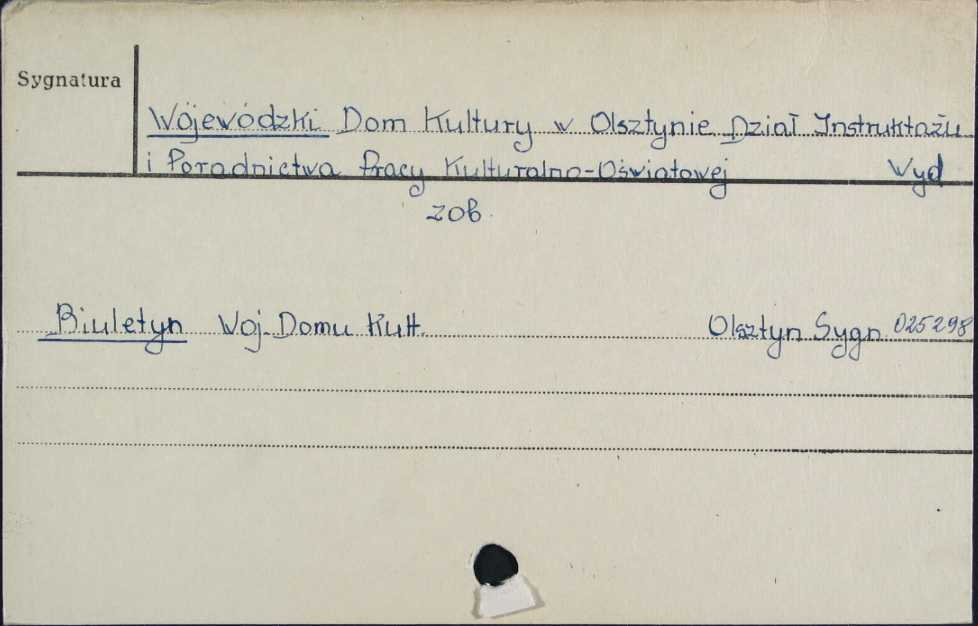 Sygnatura
Wojewódzki Dom Kultury w Olsztynie Dział Instruktażu
i Poradnictwa Pracy Kulturalno-Oświatowej Wyd
zob.
Biuletyn Woj. Domu Kult. Olsztyn Sygn 025298